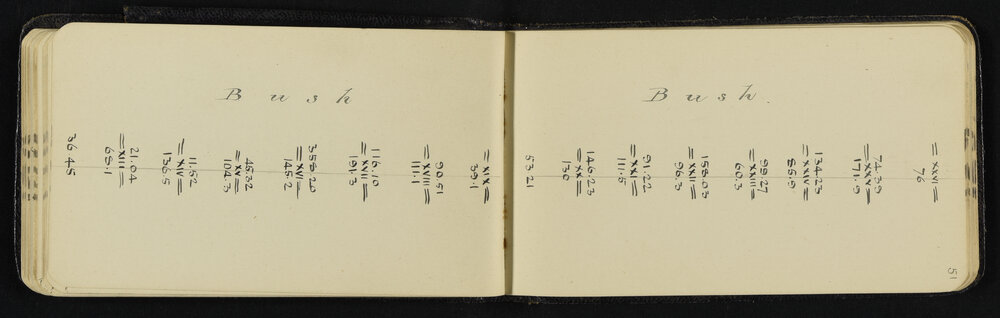 Bush
= XIX =
39.1
90.51
= XVIII =
111.1
116.10
= XVII =
191.3
358.20
= XVI =
145.2
45.32
= XV =
104.3
11.52
= XIV =
136.5
21.04
= XIII =
68.1
36 45
Bush
= XXVI =
76
74.39
= XXV =
171.9
134.23
= XXIV =
85.9
99.27
= XXIII =
60.3
158.03
= XXII =
96.3
91.22
= XXI =
111.5
146.23
= XX =
130
53 21
51